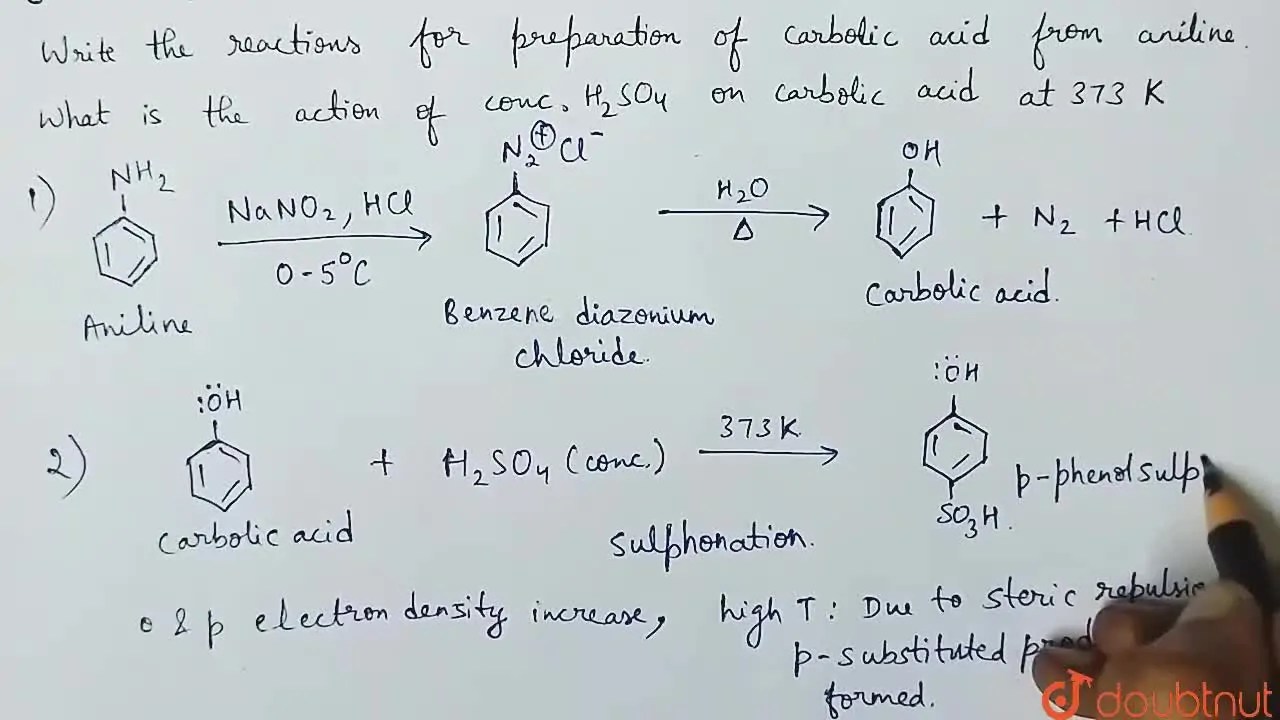 Write the reactions for preparation of carbolic acid from aniline.
What is the action of conc. H2SO4 on carbolic acid at 373 K
1)
NH2
NaNO2, HCl
0-5°C
N2⊕Cl⁻
H2O
Δ
OH
+ N2 + HCl.
Aniline
Benzene diazonium
chloride.
Carbolic acid.
2)
:ÖH
+ H2SO4 (conc.)
373 K
:ÖH
SO3H.
p-phenolsulp
Carbolic acid
Sulphonation.
o & p electron density increase,
high T: Due to steric
p-substituted
formed.
doubtnut